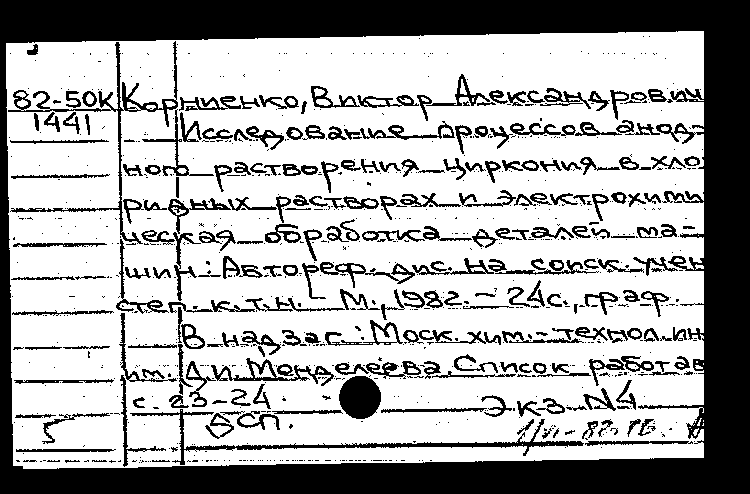 82-50К Корниенко, Виктор Александрович
1441 Исследование процессов анод-
ного растворения циркония в хло
ридных растворах и электрохими
ческая обработка деталей ма-
шин: Автореф. дис. на соиск. учен
степ. к.т.н. - М., 1982. - 24с., граф.
В надзаг.: Моск. хим.-технол. ин
им. Д.И. Менделеева. Список работ ав
с. 23-24.
ДСП. Экз. N4
5